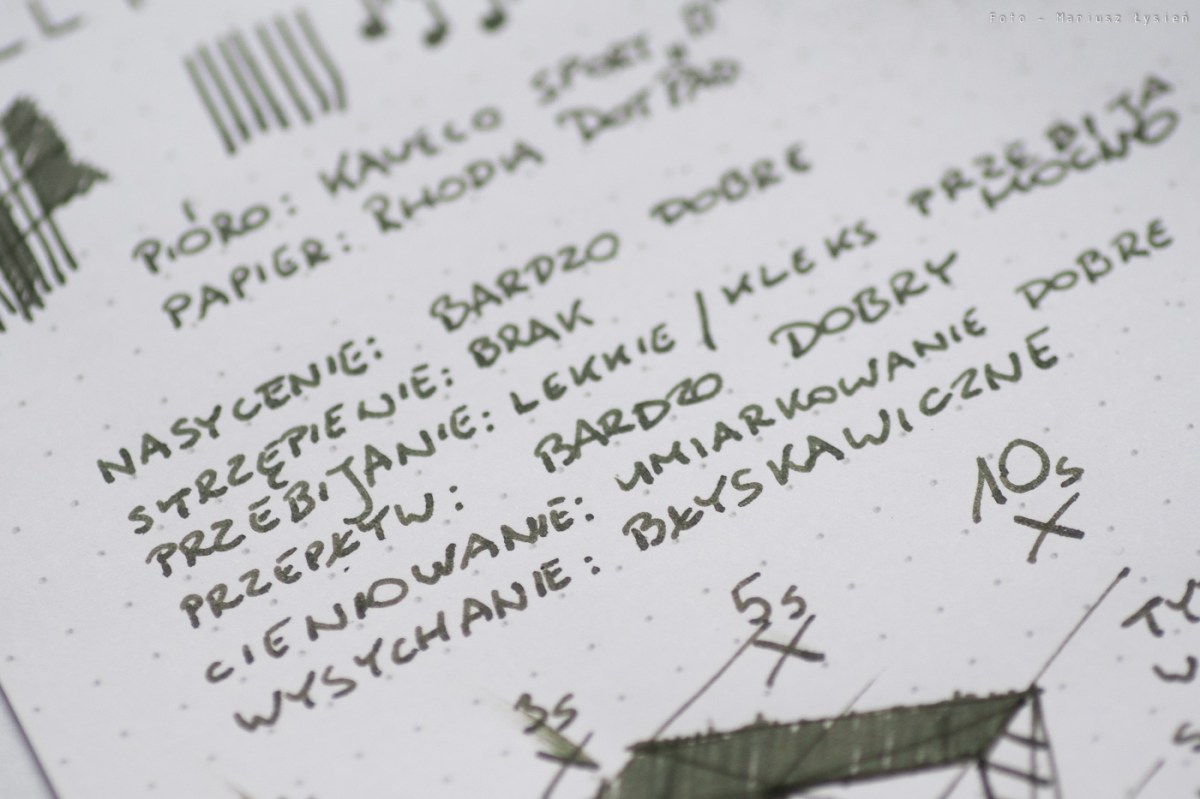 Foto - Mariusz Łysień
PIÓRO: KAWECO SPORT "B"
PAPIER: RHODIA DOT PAD
NASYCENIE: BARDZO DOBRE
STRZĘPIENIE: BRAK
PRZEBIJANIE: LEKKIE / KLEKS PRZEBIJA
MOCNO
PRZEPŁYW: BARDZO DOBRY
CIENIOWANIE: UMIARKOWANIE DOBRE
WYSYCHANIE: BŁYSKAWICZNE
10s
5s
3s